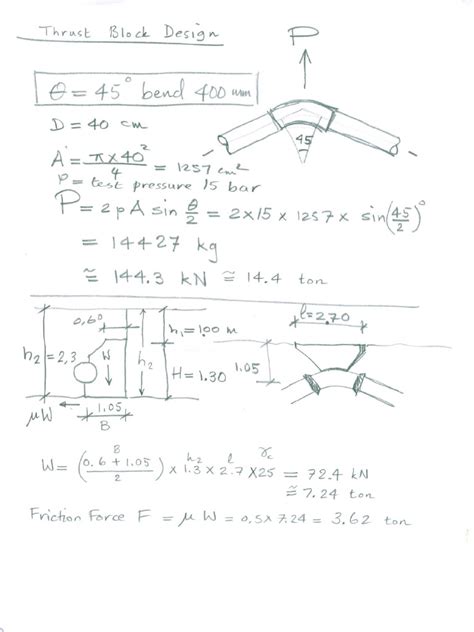 Thrust Block Design
P
θ = 45° bend 400 mm
D = 40 cm
45
A = π×40²/4 = 1257 cm²
p = test pressure 15 bar
P = 2pA sin θ/2 = 2×15 × 1257 × sin(45/2)°
= 14427 kg
≅ 144.3 kN ≅ 14.4 ton
0,60
h₁=1.00 m
l=2.70
h₂=2,3
W
h₂
H=1.30
1.05
μW
1.05
B
B
h₂ l γc
W = (0.6+1.05/2) × 1.3 × 2.7 ×25 = 72.4 kN
≅ 7.24 ton
Friction Force F = μ W = 0,5× 7.24 = 3.62 ton